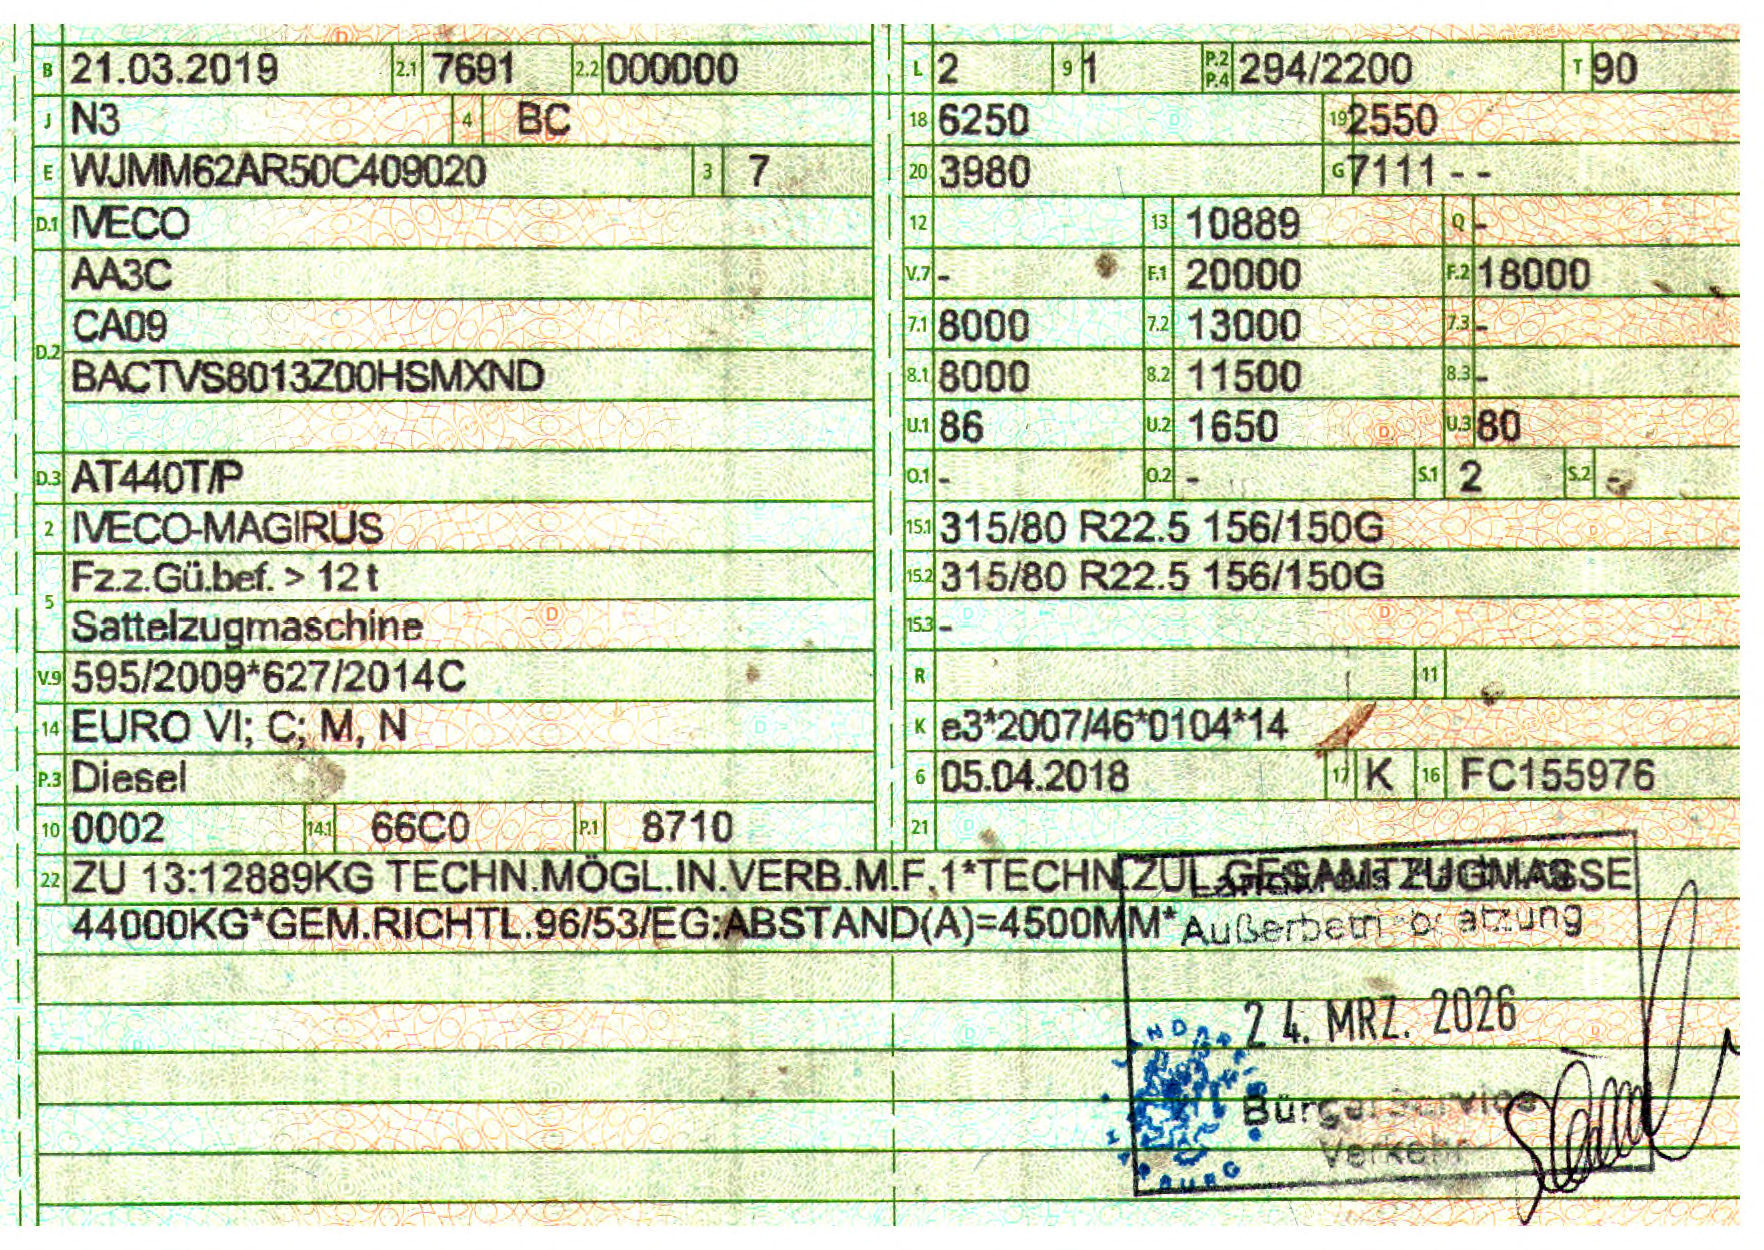 B 21.03.2019 2.1 7691 2.2 000000
J N3 4 BC
E WJMM62AR50C409020 3 7
D.1 IVECO
AA3C
CA09
D.2
BACTVS8013Z00HSMXND
D.3 AT440T/P
2 IVECO-MAGIRUS
Fz.z.Gü.bef. > 12 t
5
Sattelzugmaschine
V.9 595/2009*627/2014C
14 EURO VI; C; M, N
P.3 Diesel
10 0002 14.1 66C0 P.1 8710
L 2 9 1 P.2 P.4 294/2200 T 90
18 6250 19 2550
20 3980 G 7111 - -
12 13 10889 Q -
V.7 - F.1 20000 F.2 18000
7.1 8000 7.2 13000 7.3 -
8.1 8000 8.2 11500 8.3 -
U.1 86 U.2 1650 U.3 80
O.1 - O.2 - S.1 2 S.2 -
15.1 315/80 R22.5 156/150G
15.2 315/80 R22.5 156/150G
15.3 -
R 11
K e3*2007/46*0104*14
6 05.04.2018 17 K 16 FC155976
21
22 ZU 13:12889KG TECHN.MÖGL.IN.VERB.M.F.1*TECHN.ZUL.GESAMTZUGMASSE
44000KG*GEM.RICHTL.96/53/EG:ABSTAND(A)=4500MM*
Außerbetriebsetzung
24. MRZ. 2026
BürgerService
Verkehr